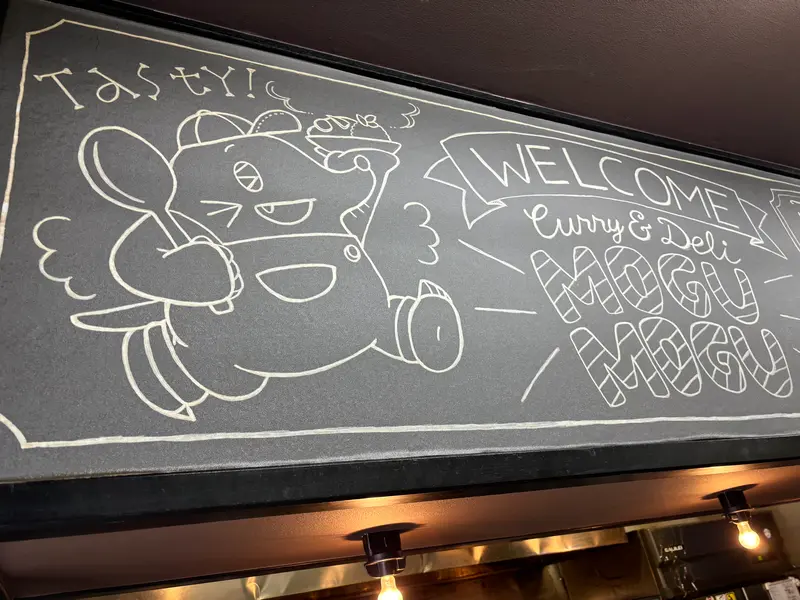 TasTY!
WELCOME
Curry & Deli
MOGU
MOGU